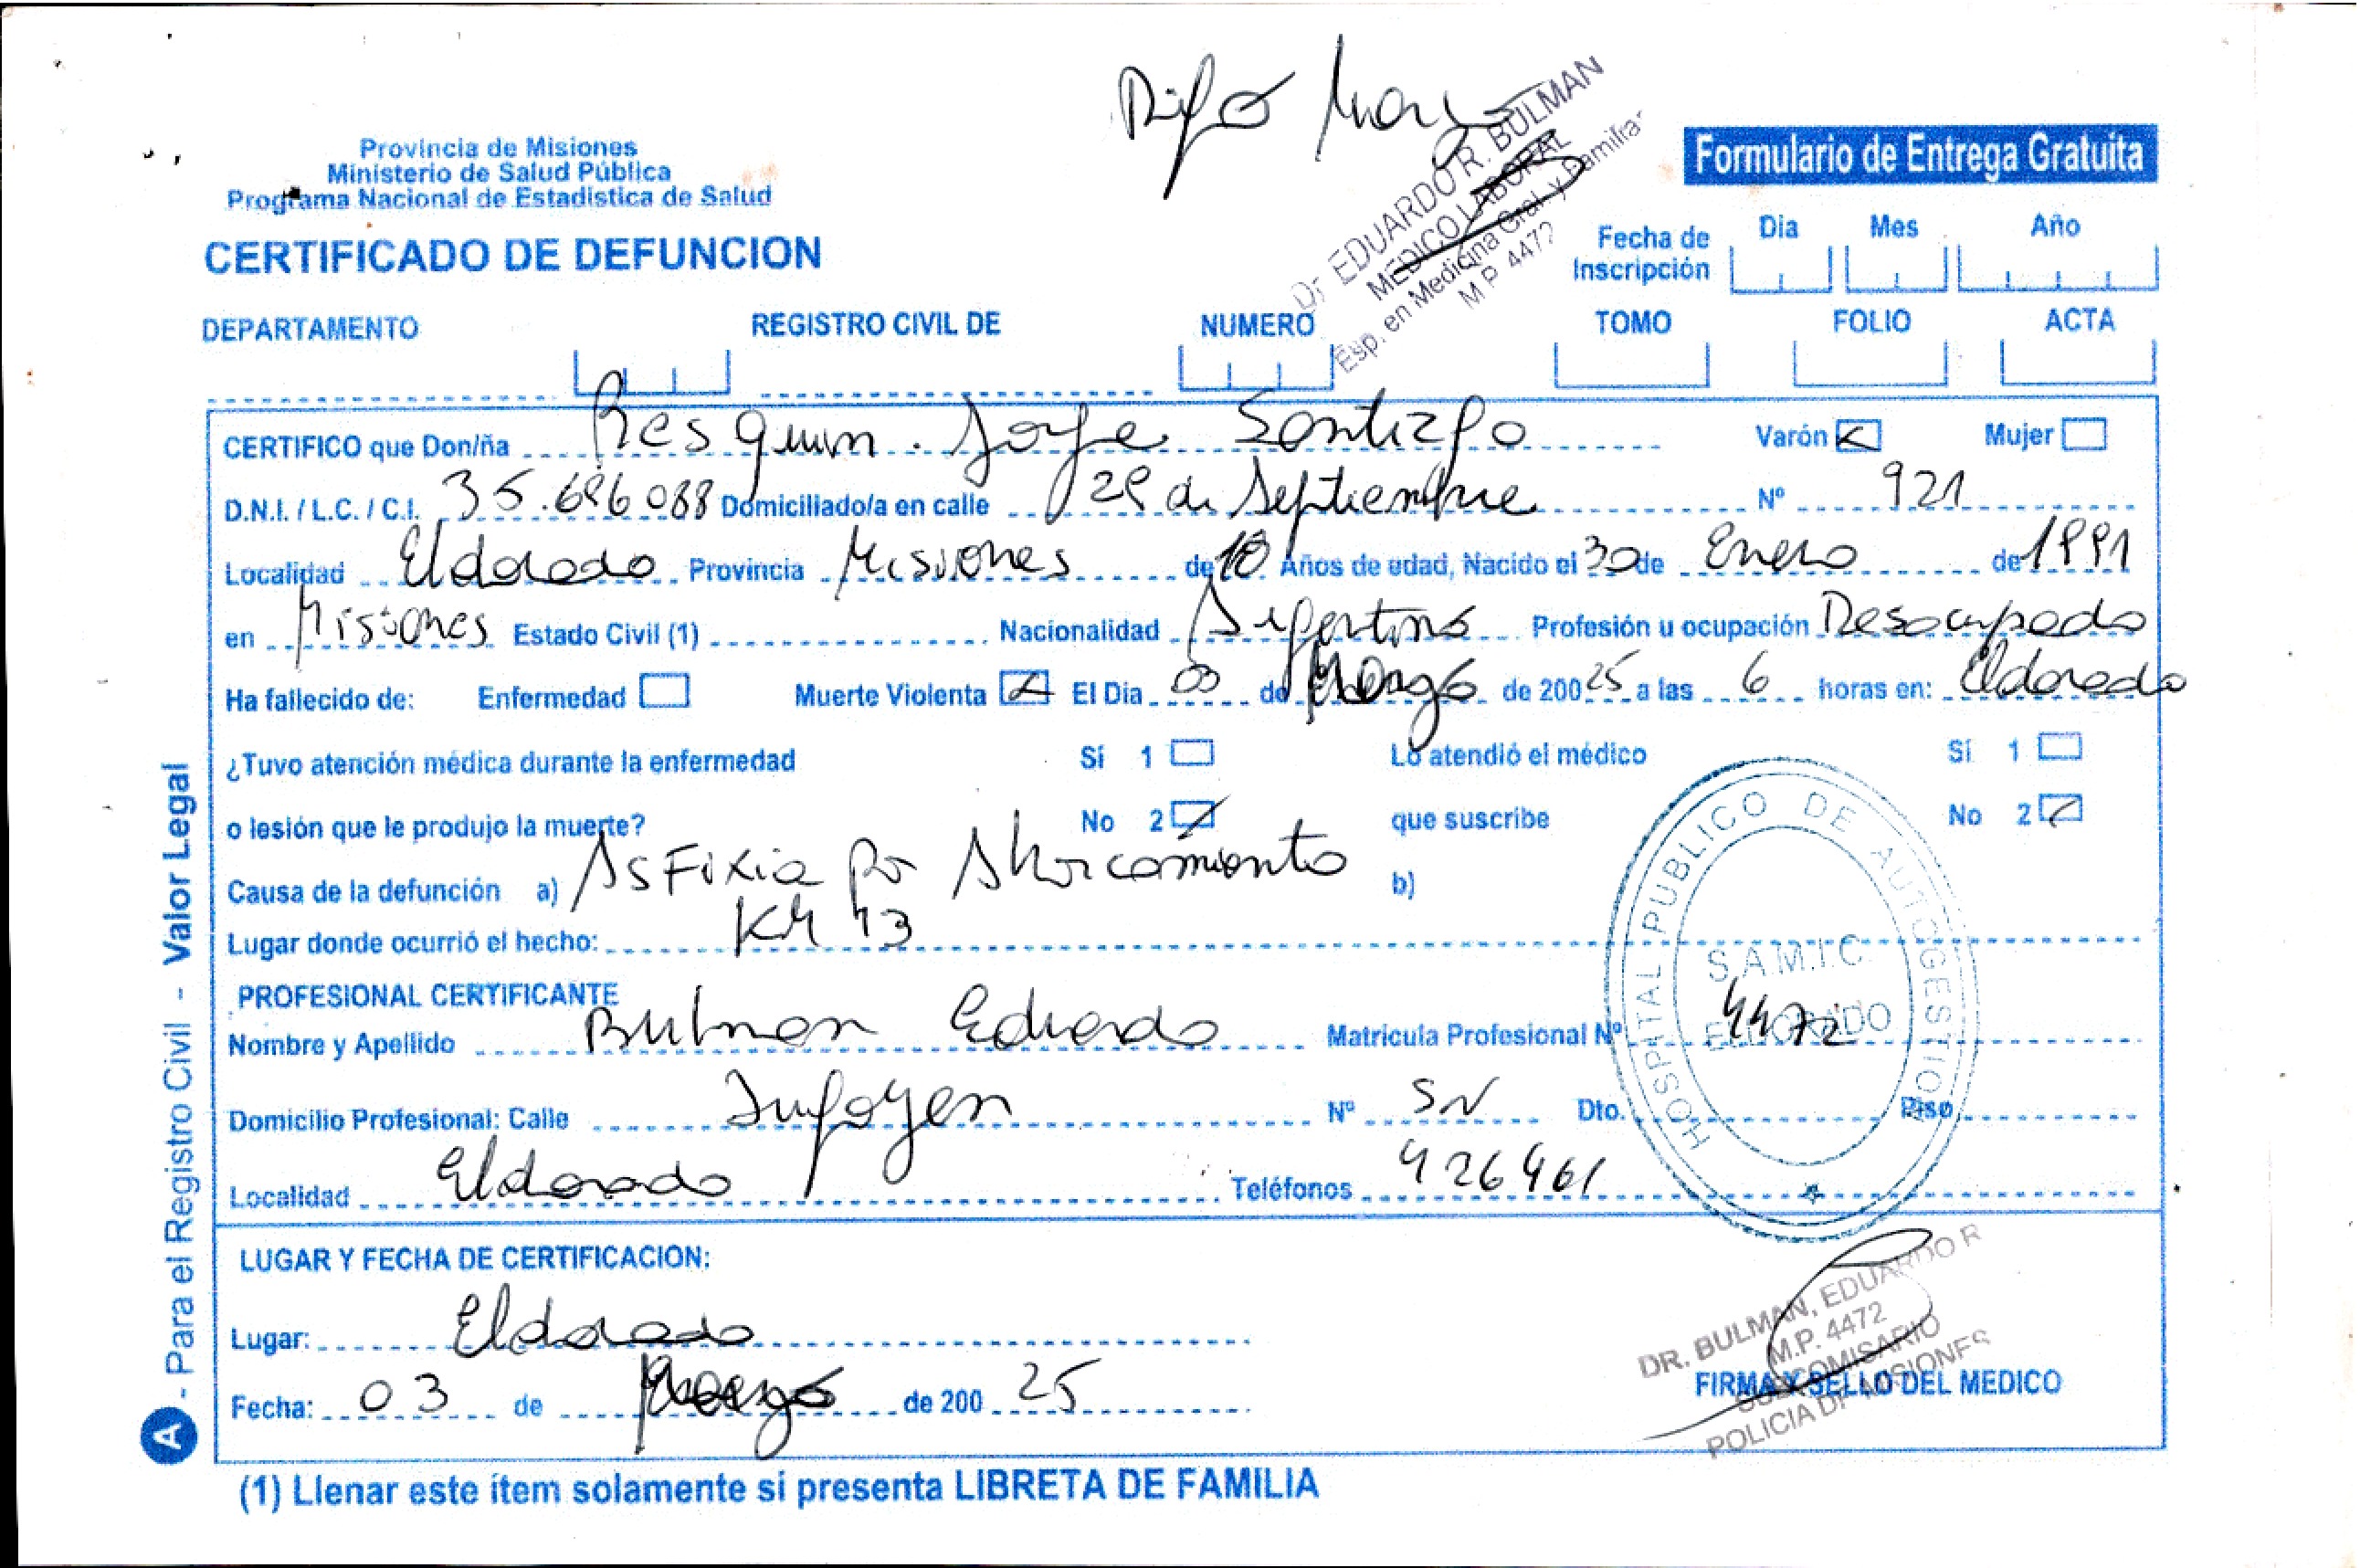 Digo Marzo
Dr EDUARDO R. BULMAN
MEDICO LABORAL
Esp. en Medicina Gral. y Familiar
M P 4472
Provincia de Misiones
Ministerio de Salud Pública
Programa Nacional de Estadística de Salud
Formulario de Entrega Gratuita
CERTIFICADO DE DEFUNCION
Fecha de Inscripción Dia Mes Año
DEPARTAMENTO REGISTRO CIVIL DE NUMERO TOMO FOLIO ACTA
CERTIFICO que Don/ña Resquin. Jorge Santiago Varón Mujer
D.N.I. / L.C. / C.I. 35.696088 Domiciliado/a en calle de Septiembre Nº 921
Localidad Eldorado Provincia Misiones de Años de edad, Nacido el 30 de Enero de 1991
en Misiones Estado Civil (1) Nacionalidad Argentino Profesión u ocupación Desocupado
Ha fallecido de: Enfermedad Muerte Violenta El Dia 03 de Marzo de 200 25 a las 6 horas en: Eldorado
¿Tuvo atención médica durante la enfermedad Sí 1 Lo atendió el médico Sí 1
o lesión que le produjo la muerte? No 2 que suscribe No 2
Causa de la defunción a) Asfixia por Ahorcamiento b)
Lugar donde ocurrió el hecho: KM
PROFESIONAL CERTIFICANTE
Nombre y Apellido Bulman Eduardo Matricula Profesional Nº 4472
Domicilio Profesional: Calle Nº SN Dto. Piso
Localidad Eldorado Teléfonos 426461
HOSPITAL PUBLICO DE AUTOGESTION
S.A.M.I.C
ELDORADO
LUGAR Y FECHA DE CERTIFICACION:
Lugar: Eldorado
Fecha: 03 de Marzo de 200 25
DR. BULMAN, EDUARDO R
M.P. 4472
SUBCOMISARIO
POLICIA DE MISIONES
FIRMA Y SELLO DEL MEDICO
(1) Llenar este ítem solamente si presenta LIBRETA DE FAMILIA
A - Para el Registro Civil - Valor Legal